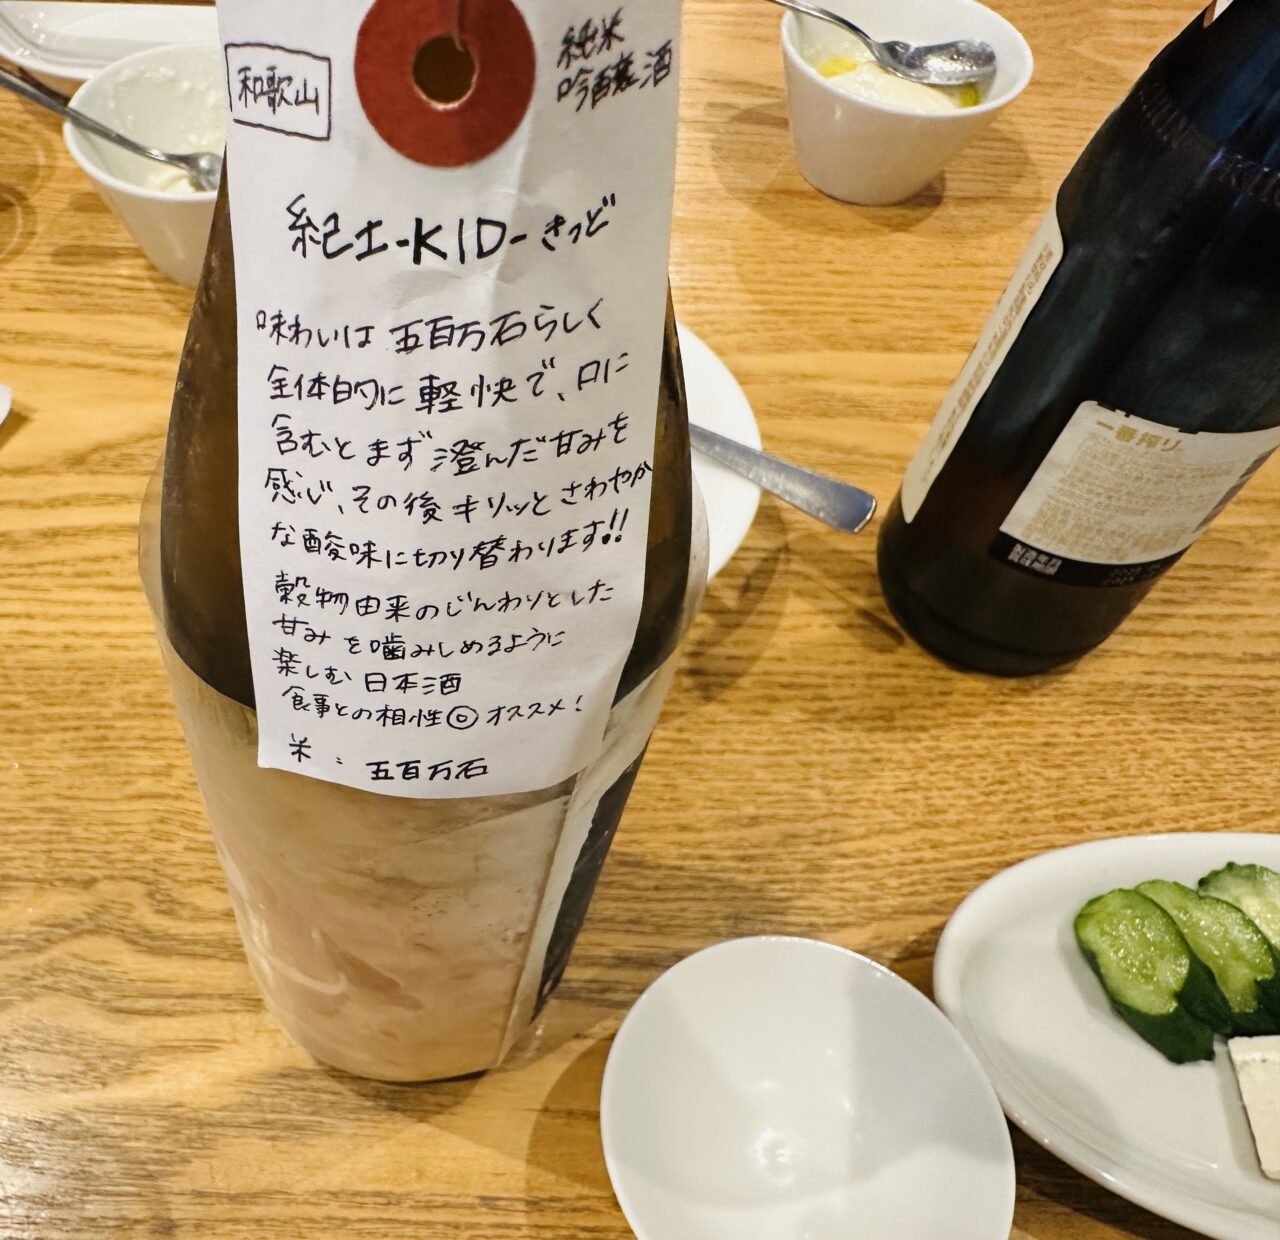 和歌山
純米
吟醸酒
紀土-KID-きっど
味わいは五百万石らしく
全体的に軽快で、口に
含むとまず澄んだ甘みを
感じ、その後キリッとさわやか
な酸味に切り替わります!!
穀物由来のじんわりとした
甘みを噛みしめるように
楽しむ日本酒
食事との相性◎オススメ!
米:五百万石
一番搾り